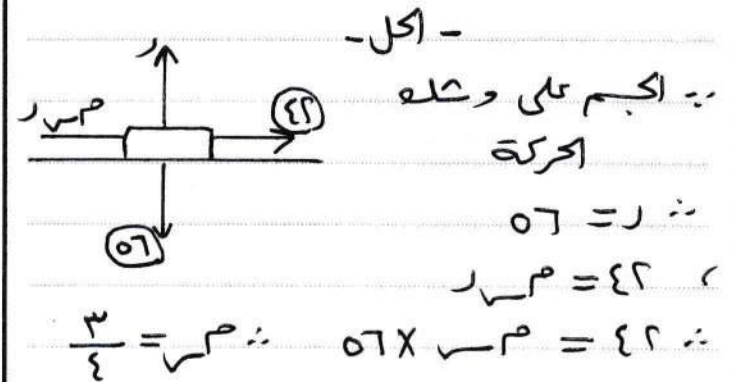 - الحل -
∵ الجسم على وشك
الحركة
∴ ر = ٥٦
، ٤٢ = م س ر
∴ ٤٢ = م س × ٥٦ ∴ م س = ٣/٤
ر
م س ر
٤٢
٥٦